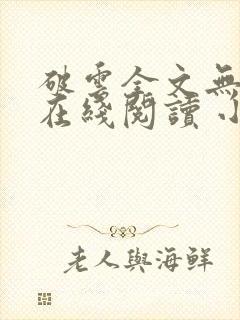 破雲全文無
在綫閱讀 小
老人與海鮮